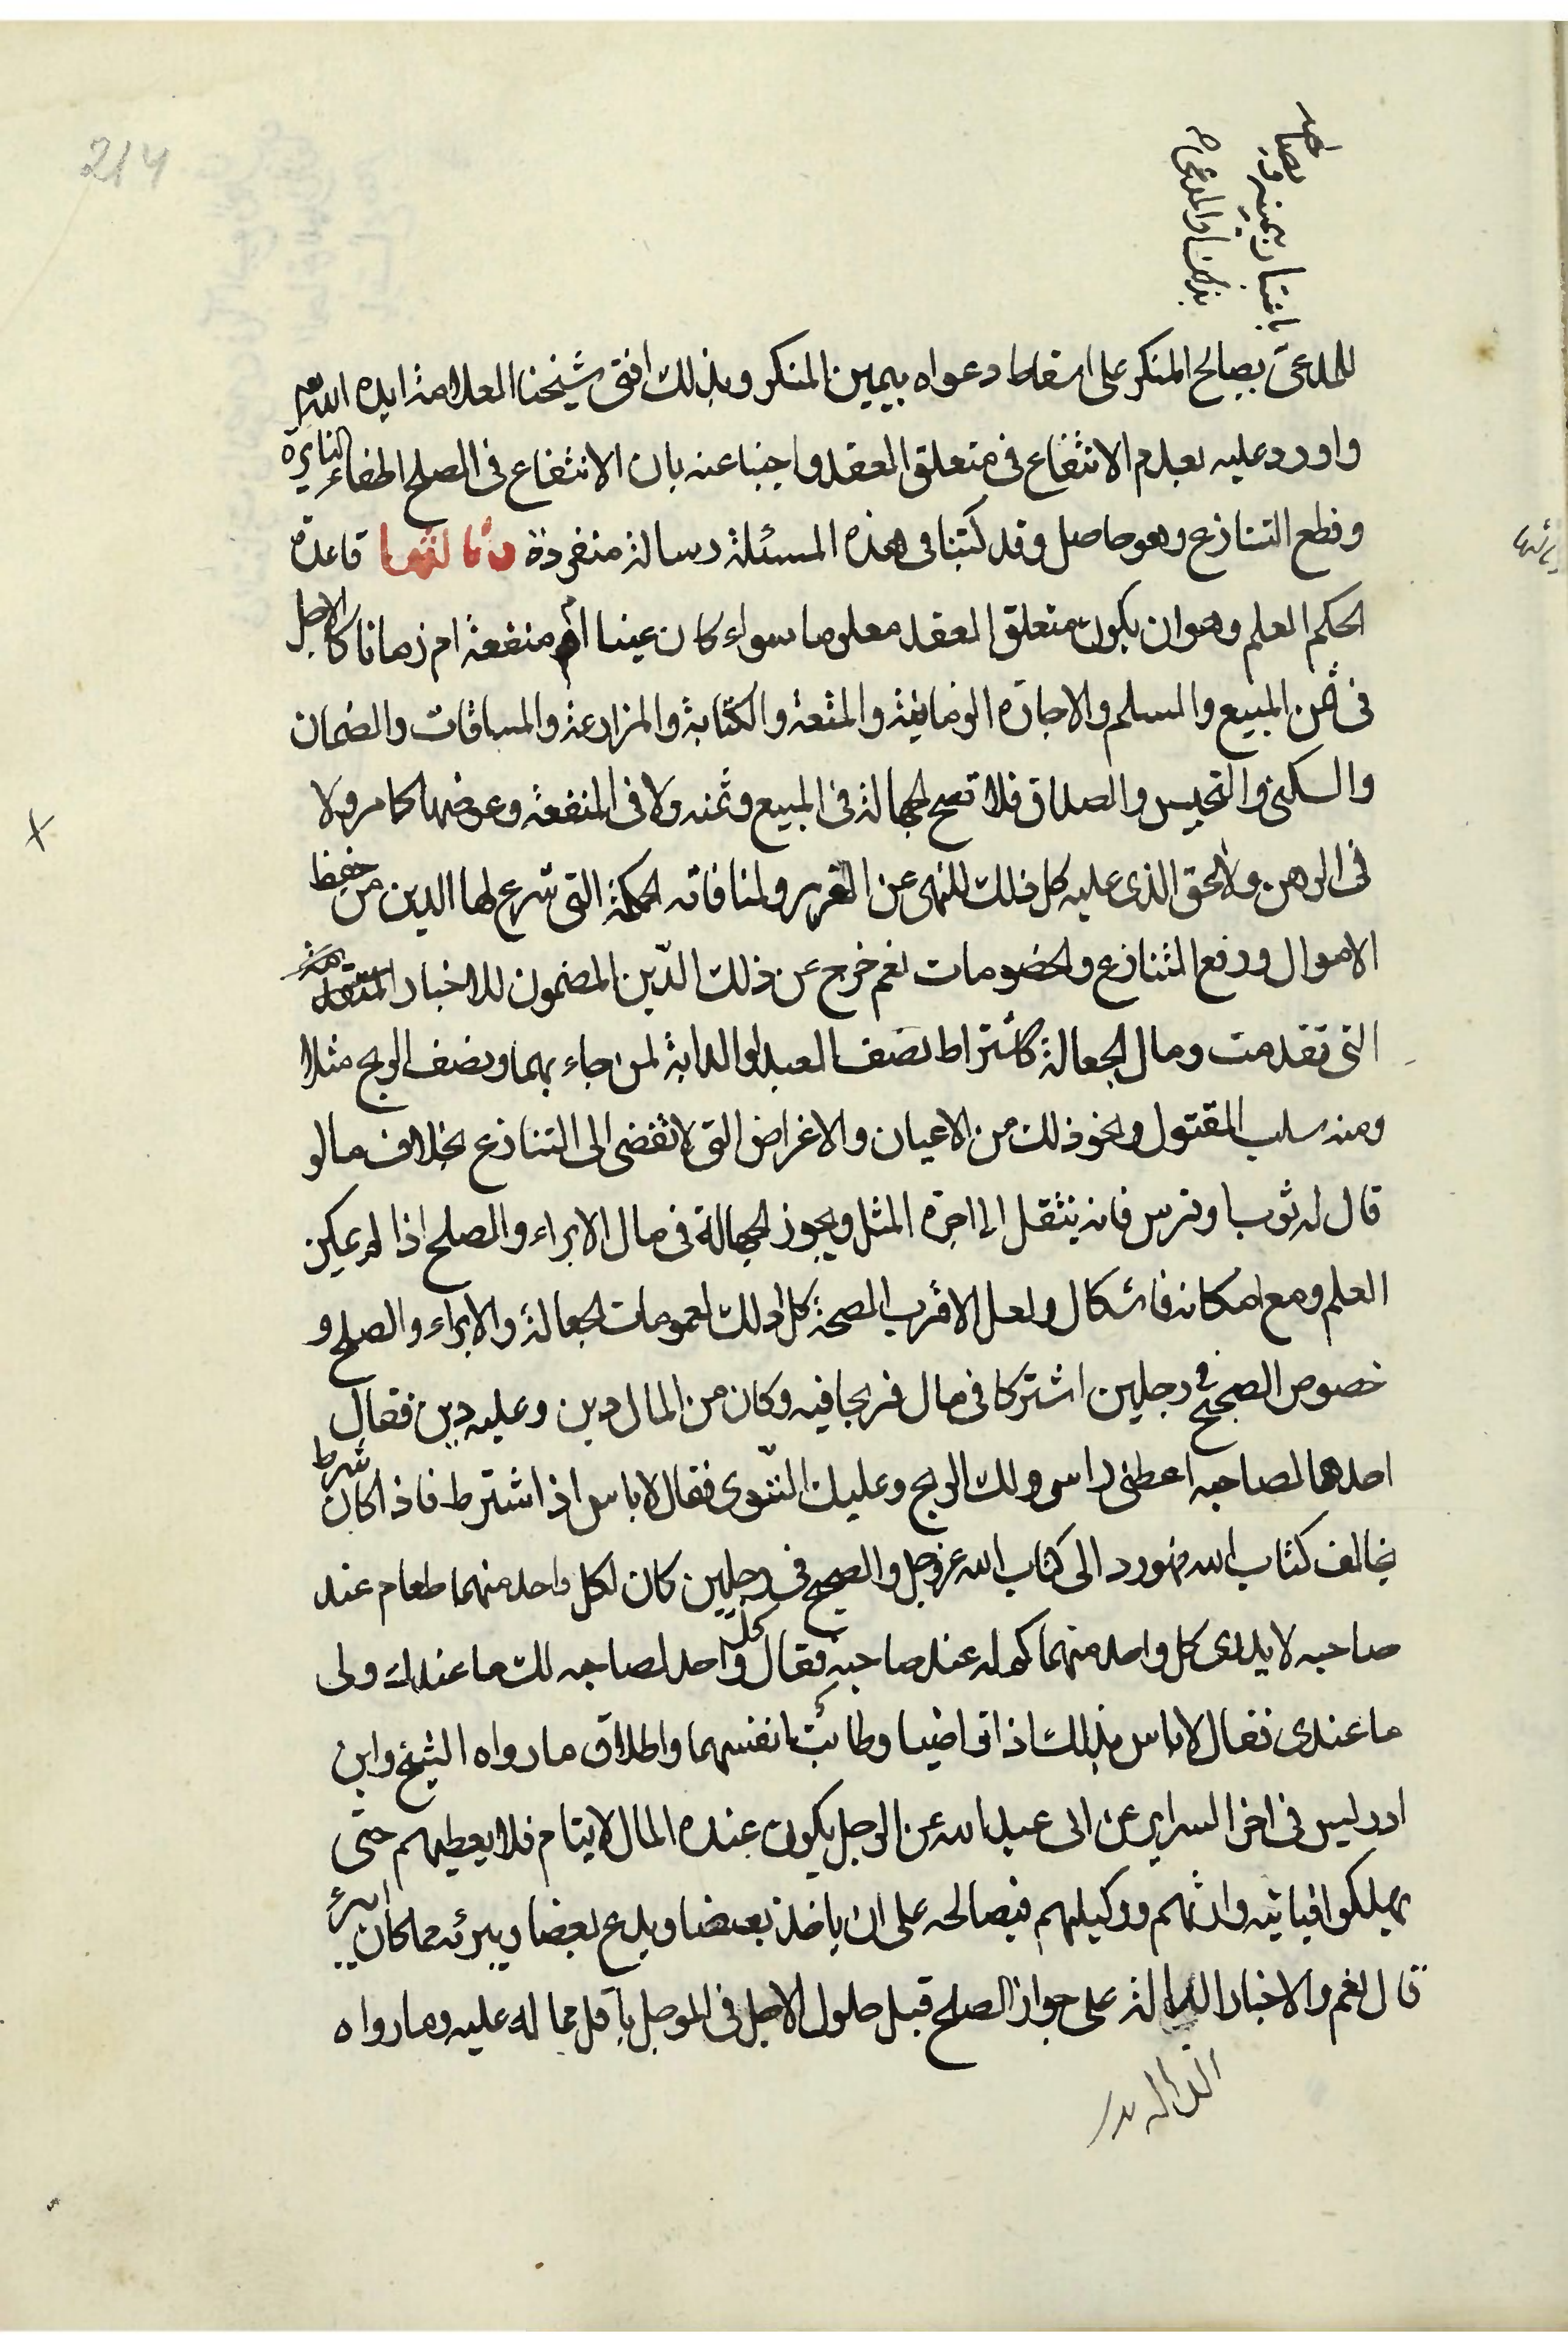 214
للمدعى يصالح المنكر على اسقاط دعواه بيمين المنكر وبذلك افتى شيخنا العلامة ايده الله
واورد عليه بعدم الانتفاع فى متعلق العقد واجبنا عنه بان الانتفاع فى الصلح اطفاء النايرة
وقطع التنازع وهو حاصل وقد كتبنا فى هذه المسئلة رسالة منفردة وثالثها قاعدة
الحكم العلم وهو ان يكون متعلق العقد معلوما سواء كان عينا ام منفعة ام زمانا كالاجل
فى ثمن المبيع والسلم والاجارة الزمانية والمتعة والكتابة والمزارعة والمساقات والضمان
والسكنى والتحبيس والصداق فلا تصح الجهالة فى المبيع وثمنه ولا فى المنفعة وعوضها كما مر ولا
فى الرهن ولا الحق الذى عليه كل ذلك للنهى عن الغرر ولمنافاته الحكمة التى شرع لها الدين من حفظ
الاموال ورفع التنازع والخصومات نعم خرج عن ذلك الدّين المضمون للاخبار
التى تقدمت ومال الجعالة كاشتراط نصف العبد او الدابة لمن جاء بهما ونصف الربح مثلا
ومنه سلب المقتول ونحو ذلك من الاعيان والاغراض التى لا تفضى الى التنازع بخلاف ما لو
قال له ثوب او فرس فانه ينتقل الى اجرة المثل ويجوز الجهالة فى مال الابراء والصلح اذا لم يمكن
العلم ومع امكانه فاشكال ولعل الاقرب الصحة كل ذلك لعمومات الجعالة والابراء والصلح و
خصوص الصحيح فى رجلين اشتركا فى مال فربحا فيه وكان من المال دين وعليه دين فقال
احدهما لصاحبه اعطنى راس ولك الربح وعليك التّوى فقال لا باس اذا اشترط فاذا كان شرط
يخالف كتاب الله فهو رد الى كتاب الله عز وجل والصحيح فى رجلين كان لكل واحد منهما طعام عند
صاحبه لا يدرى كل واحد منهما كم له عند صاحبه فقال كل واحد لصاحبه لك ما عندك ولى
ما عندى فقال لا باس بذلك اذا تراضيا وطابت انفسهما واطلاق ما رواه الشيخ وابن
ادريس فى اخر السراير عن ابى عبد الله عن الرجل يكون عنده المال لايتام فلا يعطيهم حتى
يهلكوا فياتيه وارثهم ووكيلهم فيصالحه على ان ياخذ بعضا ويدع بعضا ويبرئه مما كان ايبرء
قال نعم والاخبار الدالة على جواز الصلح قبل حلول الاجل فى الموجل باقل مما له عليه وما رواه